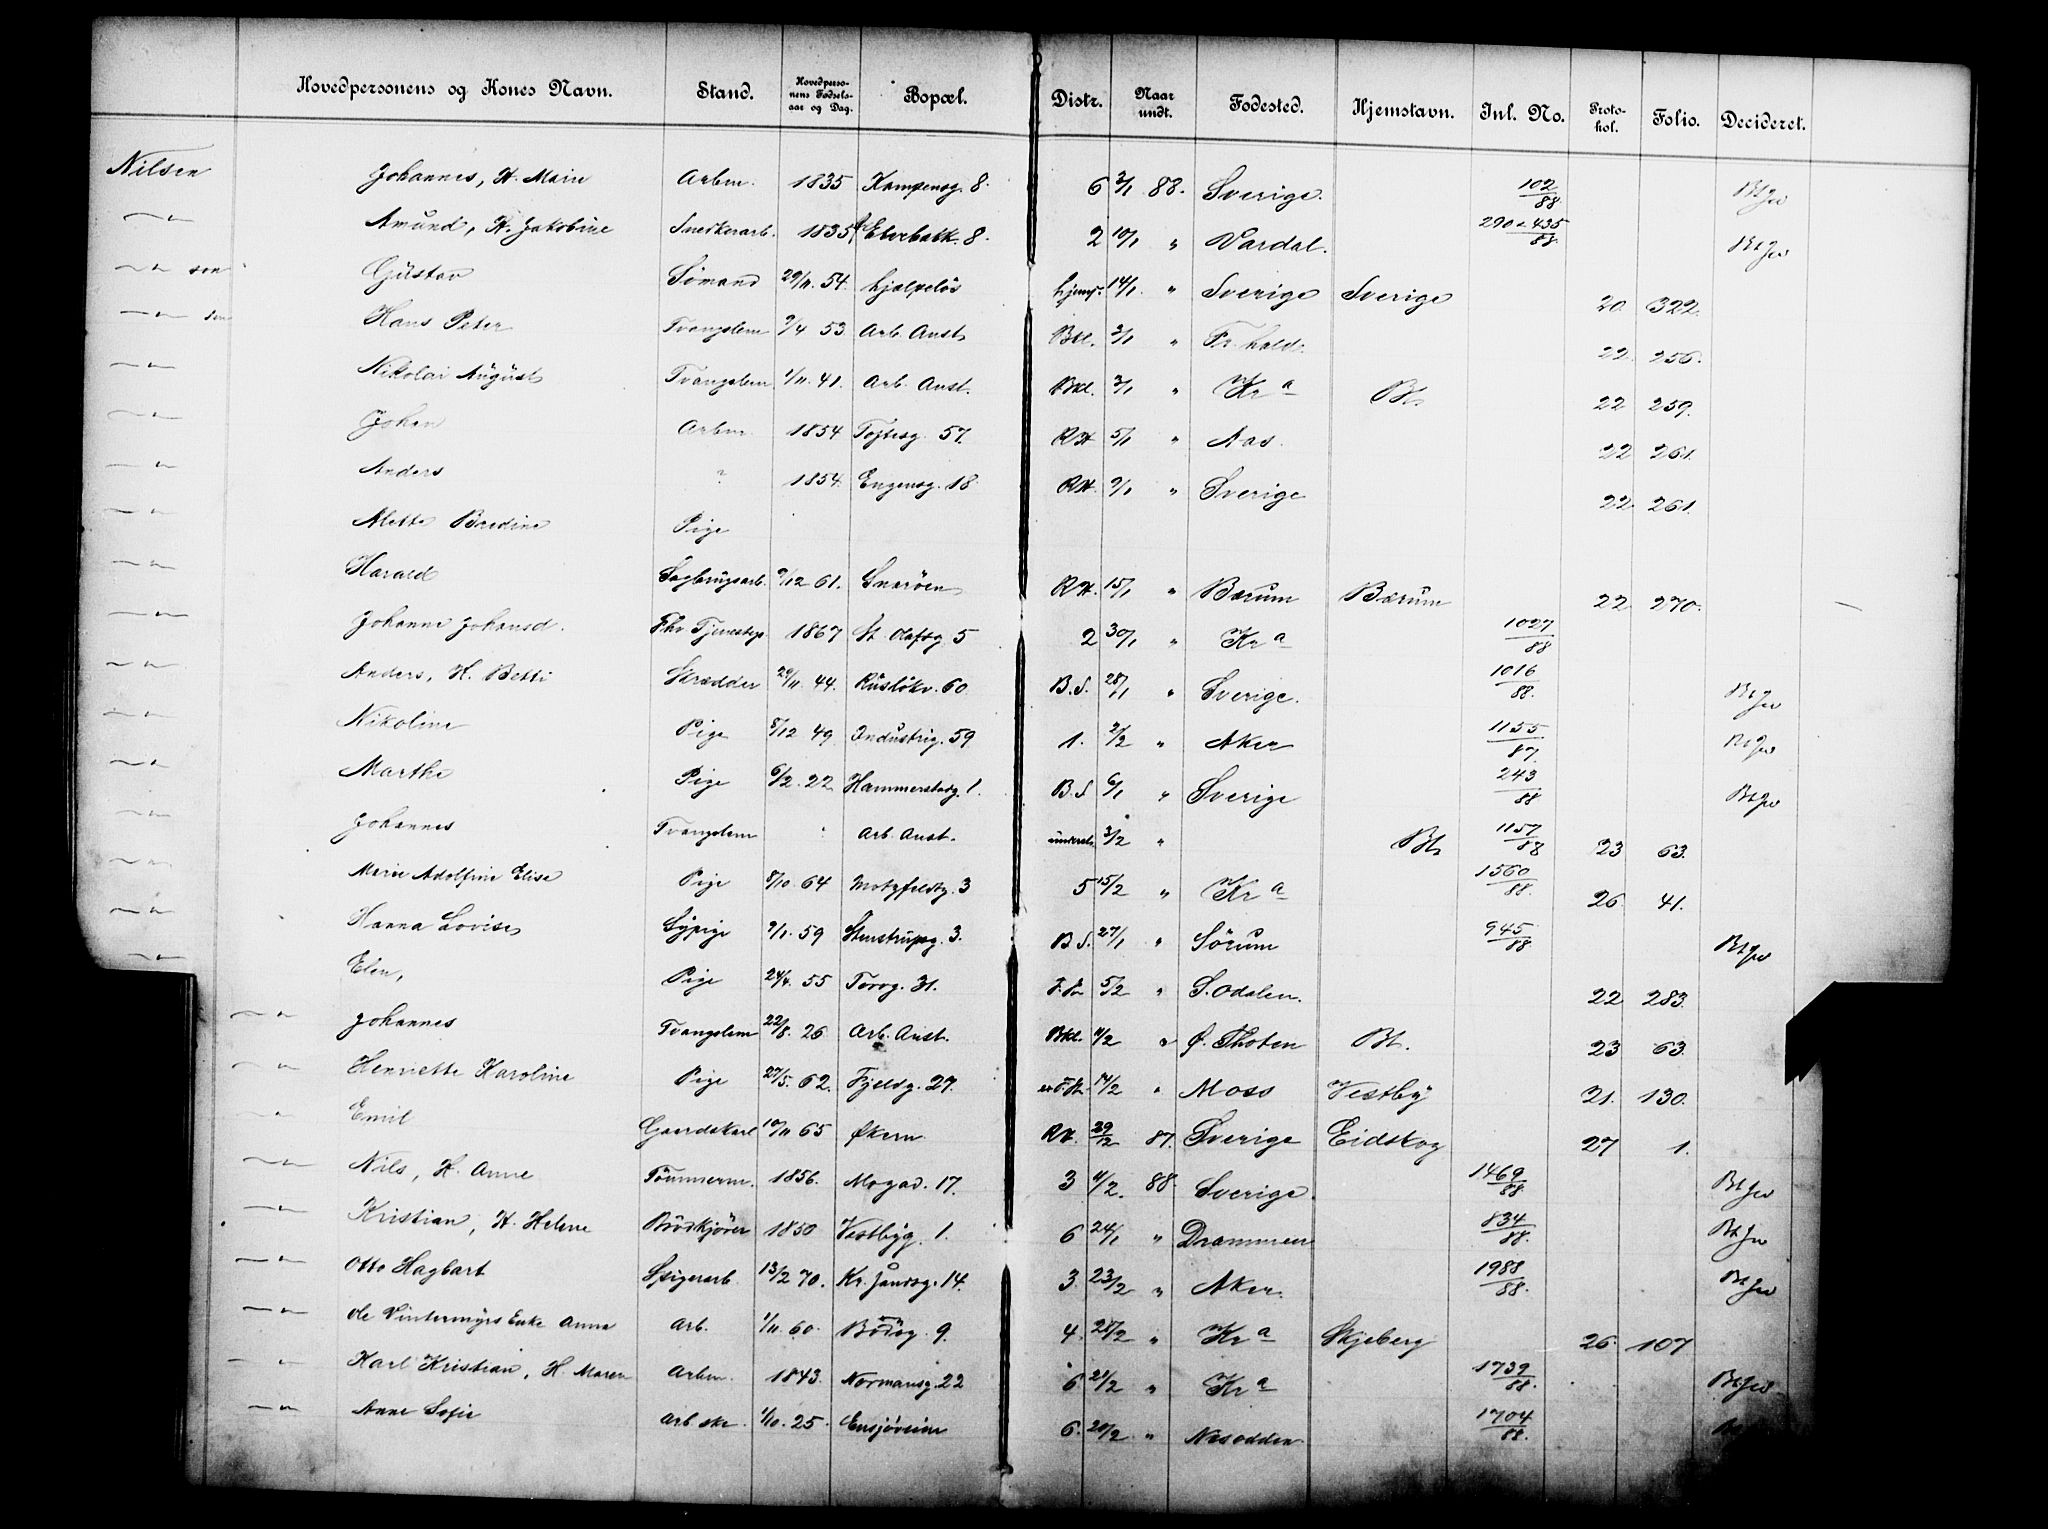 Hovedpersonens og Kones Navn. Stand. Hovedpersonens Fødselsaar og Dag. Bopæl. Distr. Naar undt. Fødested. Hjemstavn. Inl. No. Protokol. Folio. Decideret.
Nilsen Johannes, H. Marie Arbm. 1835 Kampensg. 8. 6 2/1 88. Sverige. 102/88 Bt Jw
—"— Amund, H. Jakobine Snedkerarb. 1835 Elvebakk. 8. 2 10/1 " Vardal. 290 & 435/88 Bt Jw
—"— sen Gustav Sømand 29/11. 54. hjælpeløs hjemf. 14/1 " Sverige Sverige 20. 322.
—"— sen Hans Peter Tvangslem 7/4 53 Arb. Anst. Bkl. 3/1 " Fr.hald. 22 256.
—"— Nikolai August Tvangslem 1/11. 41. Arb. Anst. Bkl. 3/1 " Kr a Bt. 22 259.
—"— Johan Arbm. 1854 Tøjtesg. 57. RH 5/1 " Aas. 22 261.
—"— Anders ? 1854. Engensg. 18. RH. 9/1 " Sverige 22 261.
—"— Alette Bredine Pige
—"— Harald Sagbrugsarb. 9/12 61. Snarøen RH. 15/1 " Bærum Bærum 22 270.
—"— Johanne Johansd. Fhv Tjenestepi 1867 St. Olafsg. 5 2 30/1 " Kr a 1027/88
—"— Anders, H. Betti Skrædder 29/11. 44. Rusløkv. 60 B.S. 28/1 " Sverige. 1016/88. Bt Jw
—"— Nikoline Pige 8/12 49. Industrig. 59 1. 2/2 " Aker 1155/87. Bt Jw
—"— Marthe Pige 6/2. 22. Hammersborg. 1. B.S 6/1 " Sverige 243/88 Bt Jw
—"— Johannes Tvangslem " Arb. Anst. 3/2 " Bt. 1157/88 23 63.
—"— Marie Adolfine Elise Pige 8/10 64 Motzfeldtg. 3 5 15/2 " Kr a 1560/88. 26. 41.
—"— Hanna Lovise Sypige 9/1. 59 Stenstrupsg. 3. B.S. 27/1 " Sørum 945/88 Bt Jw
—"— Elen, Pige 24/4. 55 Torvg. 31. 5/2 " S. Odalen. 22 283.
—"— Johannes Tvangslem 22/8. 26. Arb. Anst. Bkl. 11/2 " Ø. Thoten Bt. 23 63.
—"— Henriette Karoline Pige 27/5. 62. Fjeldg. 27. 14/2 " Moss Vestby 21. 130.
—"— Emil Gaardskarl 10/11 65 Økern. RH. 29/2 87. Sverige Eidskog 27 1.
—"— Nils, H. Anne Tømmerm. 1856. Mogad. 17. 3 11/2. 88. Sverige. 1469/88. Bt Jw
—"— Kristian, H. Helene Brødkjører 1850 Vestbyg. 1. 6 24/1 " Drammen 834/88. Bt Jw
—"— Otto Hagbart Spigerarb. 13/2 70. Kr. Jansog. 14. 3. 23/2 " Aker. 1988/88. Bt Jw
—"— de Vintermyrs Enke Anna Arb. 1/11. 60. Bodøg. 9. 4. 28/2 " Kr a Skjeberg 26. 107
—"— Karl Kristian, H. Maren Arbm. 1843. Normansg. 22 6. 21/2 " Kr a 1739/88. Bt Jw
—"— Anne Sofie Arb ske. 1/10. 25. Ensjøveien 6. 20/2 " Næsodden 1704/88.